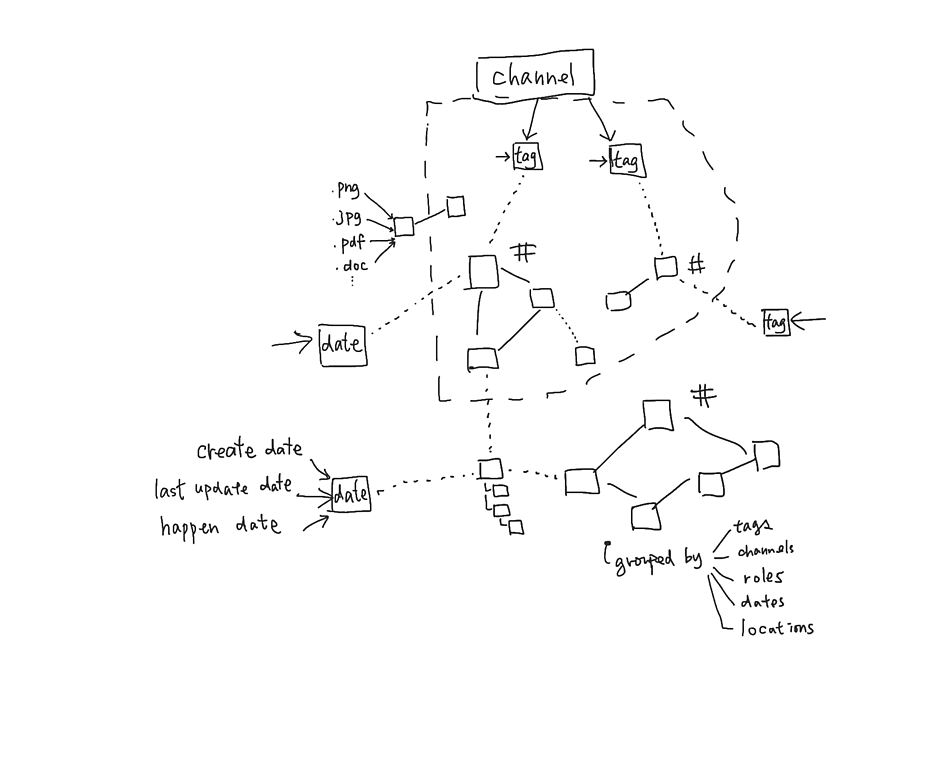 channel
tag
tag
.png
.jpg
.pdf
.doc
⋮
#
#
date
tag
#
create date
last update date
happen date
date
grouped by
tags
channels
roles
dates
locations